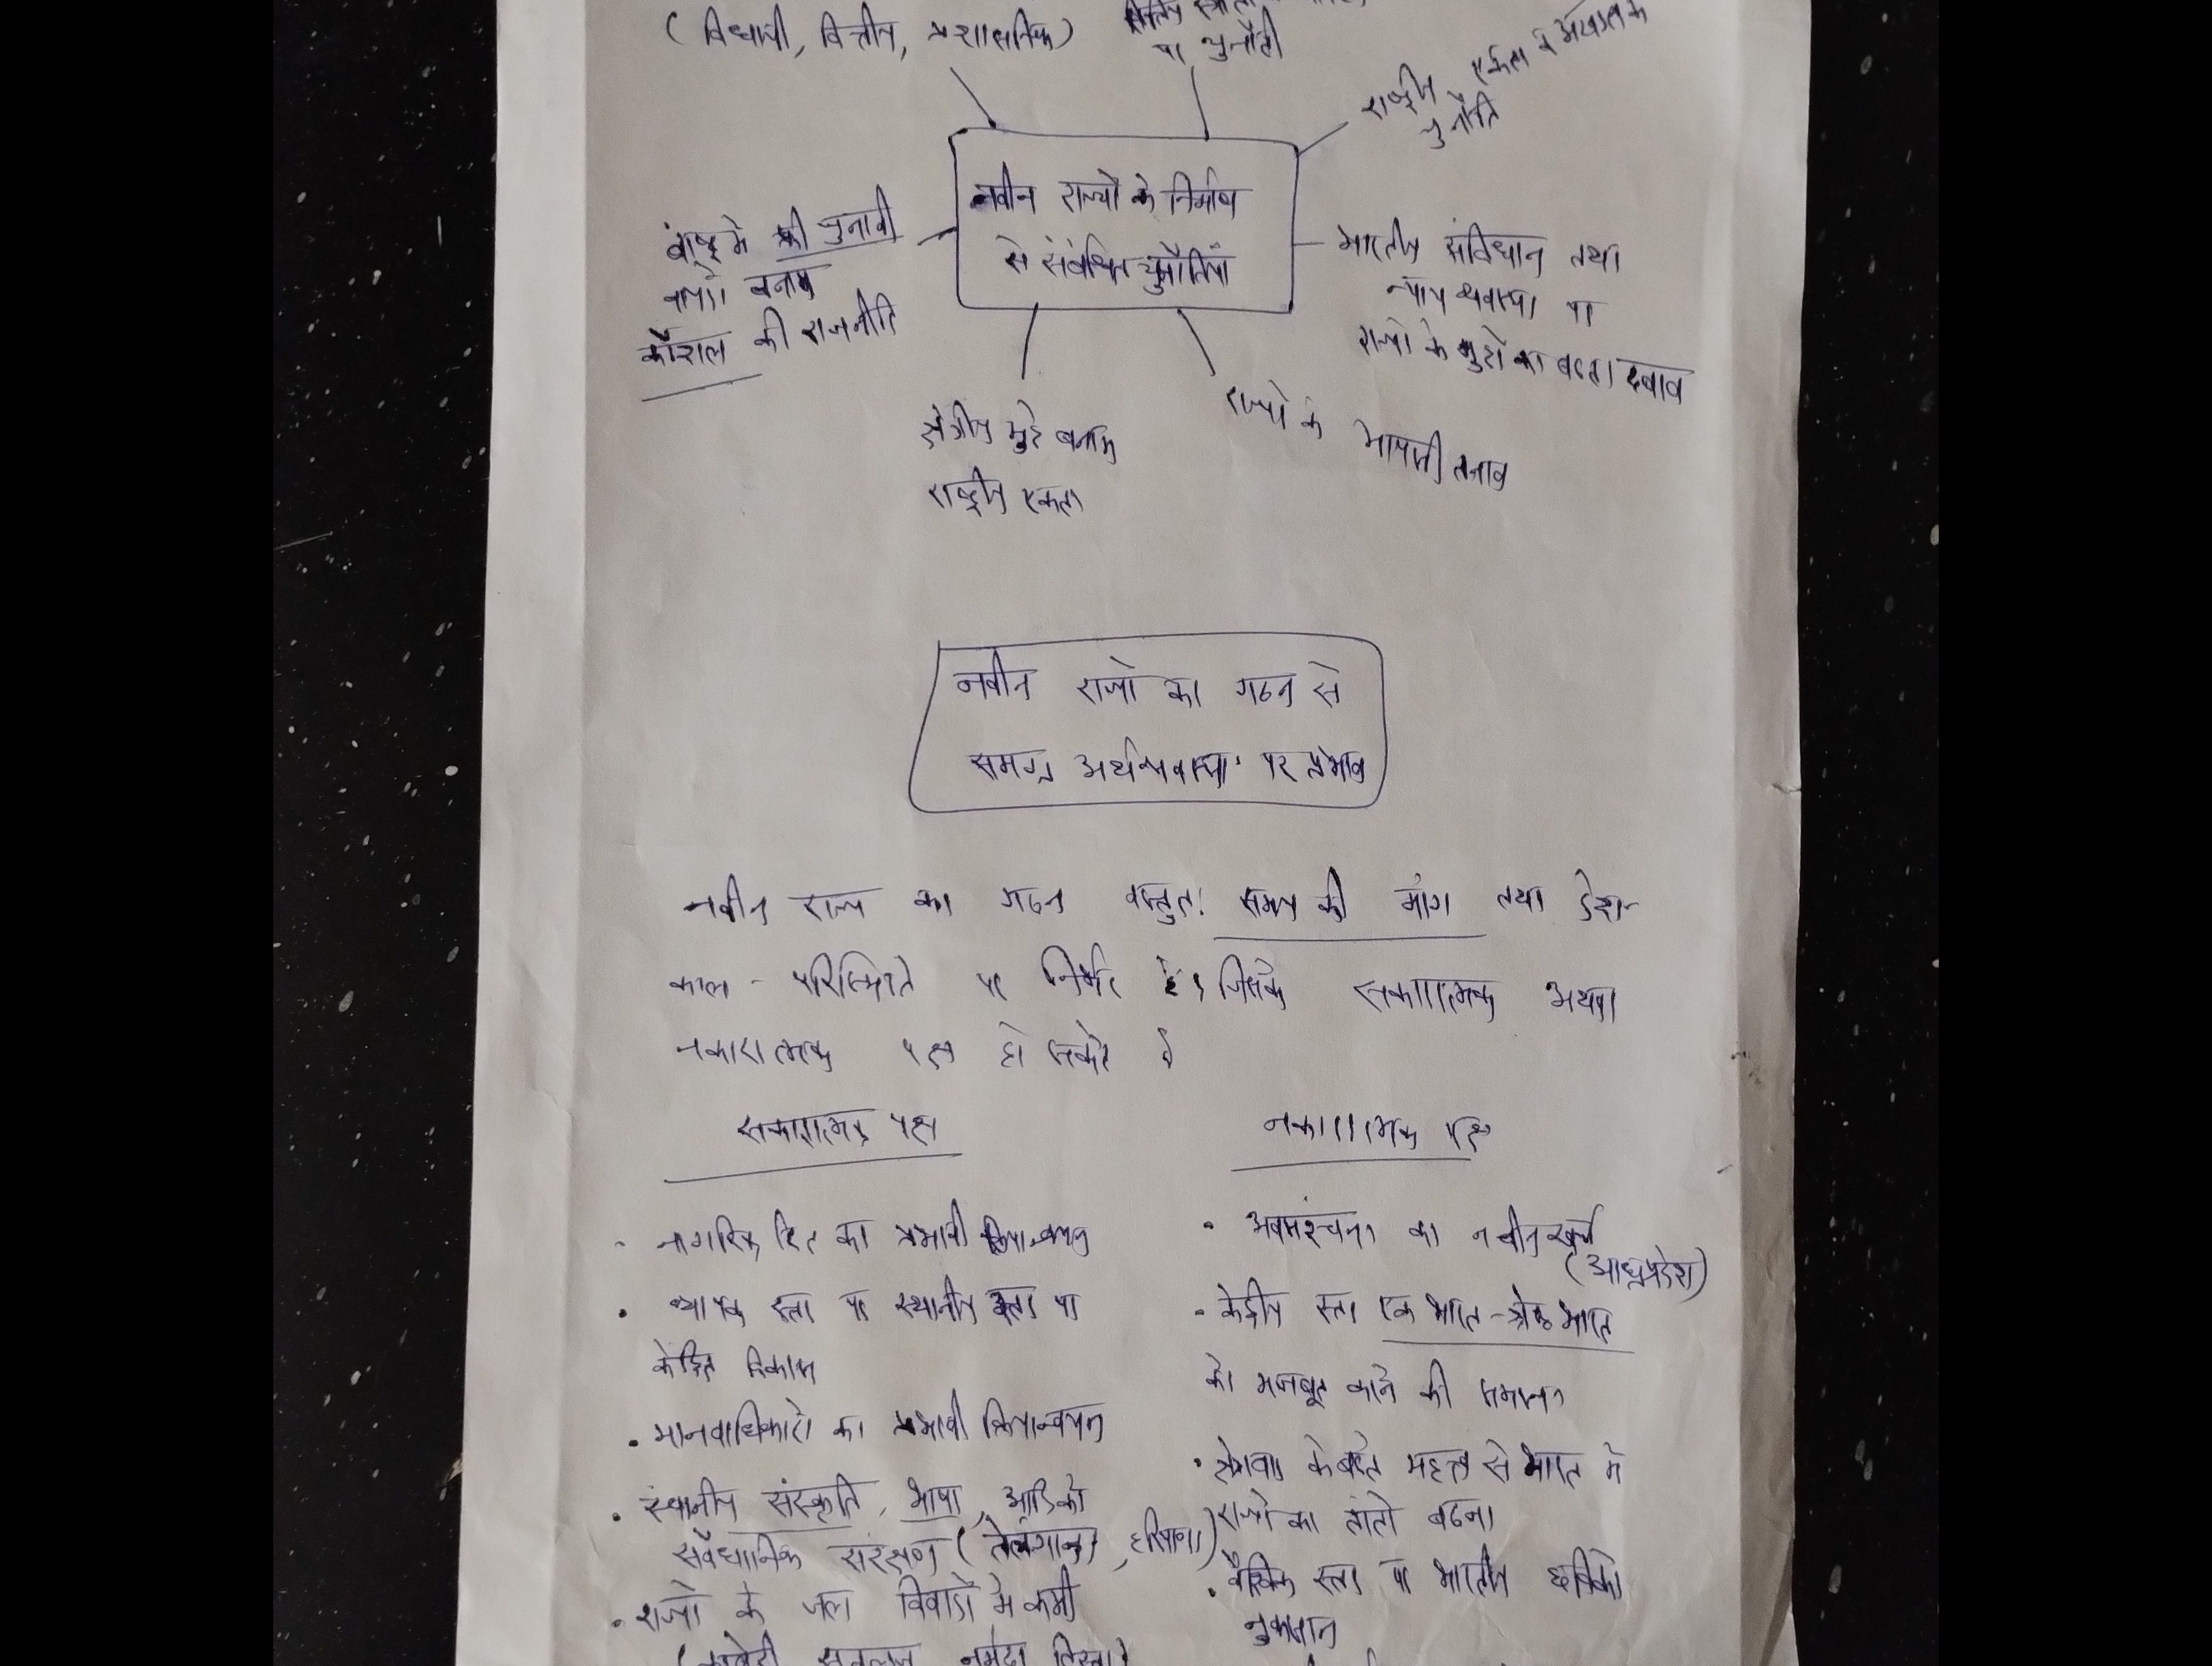 (विधायी, वित्तीय, प्रशासनिक)
पर चुनौती
राष्ट्रीय एकता व अखण्डता के
चुनौती
नवीन राज्यों के निर्माण
से संबंधित चुनौतियां
की चुनावी
वादा बनाम
कौशल की राजनीति
भारतीय संविधान तथा
न्याय व्यवस्था पर
राज्यों के मुद्दों का बढ़ता दबाव
क्षेत्रीय मुद्दे बनाम
राष्ट्रीय एकता
राज्यों के आपसी तनाव
नवीन राज्यों का गठन से
समग्र अर्थव्यवस्था पर प्रभाव
नवीन राज्य का गठन वस्तुतः समय की मांग तथा देश-
काल - परिस्थिति पर निर्भर है, जिसके सकारात्मक अथवा
नकारात्मक पक्ष हो सकते हैं
सकारात्मक पक्ष
• नागरिक हित का प्रभावी क्रियान्वयन
• व्यापक स्तर पर स्थानीय स्तर पर
केंद्रित विकास
• मानवाधिकारों का प्रभावी क्रियान्वयन
• स्थानीय संस्कृति, भाषा, आदि को
संवैधानिक संरक्षण (तेलंगाना, हरियाणा)
• राज्यों के जल विवादों में कमी
(कावेरी सतलज नर्मदा तिस्ता)
नकारात्मक पक्ष
• अवसंरचना का नवीन खर्च
(आंध्रप्रदेश)
• केंद्रीय स्तर एक भारत-श्रेष्ठ भारत
को मजबूत करने की समस्या
• के बढ़ते महत्व से भारत में
राज्यों का तांतो बढ़ना
• वैश्विक स्तर पर भारतीय छवि को
नुकसान